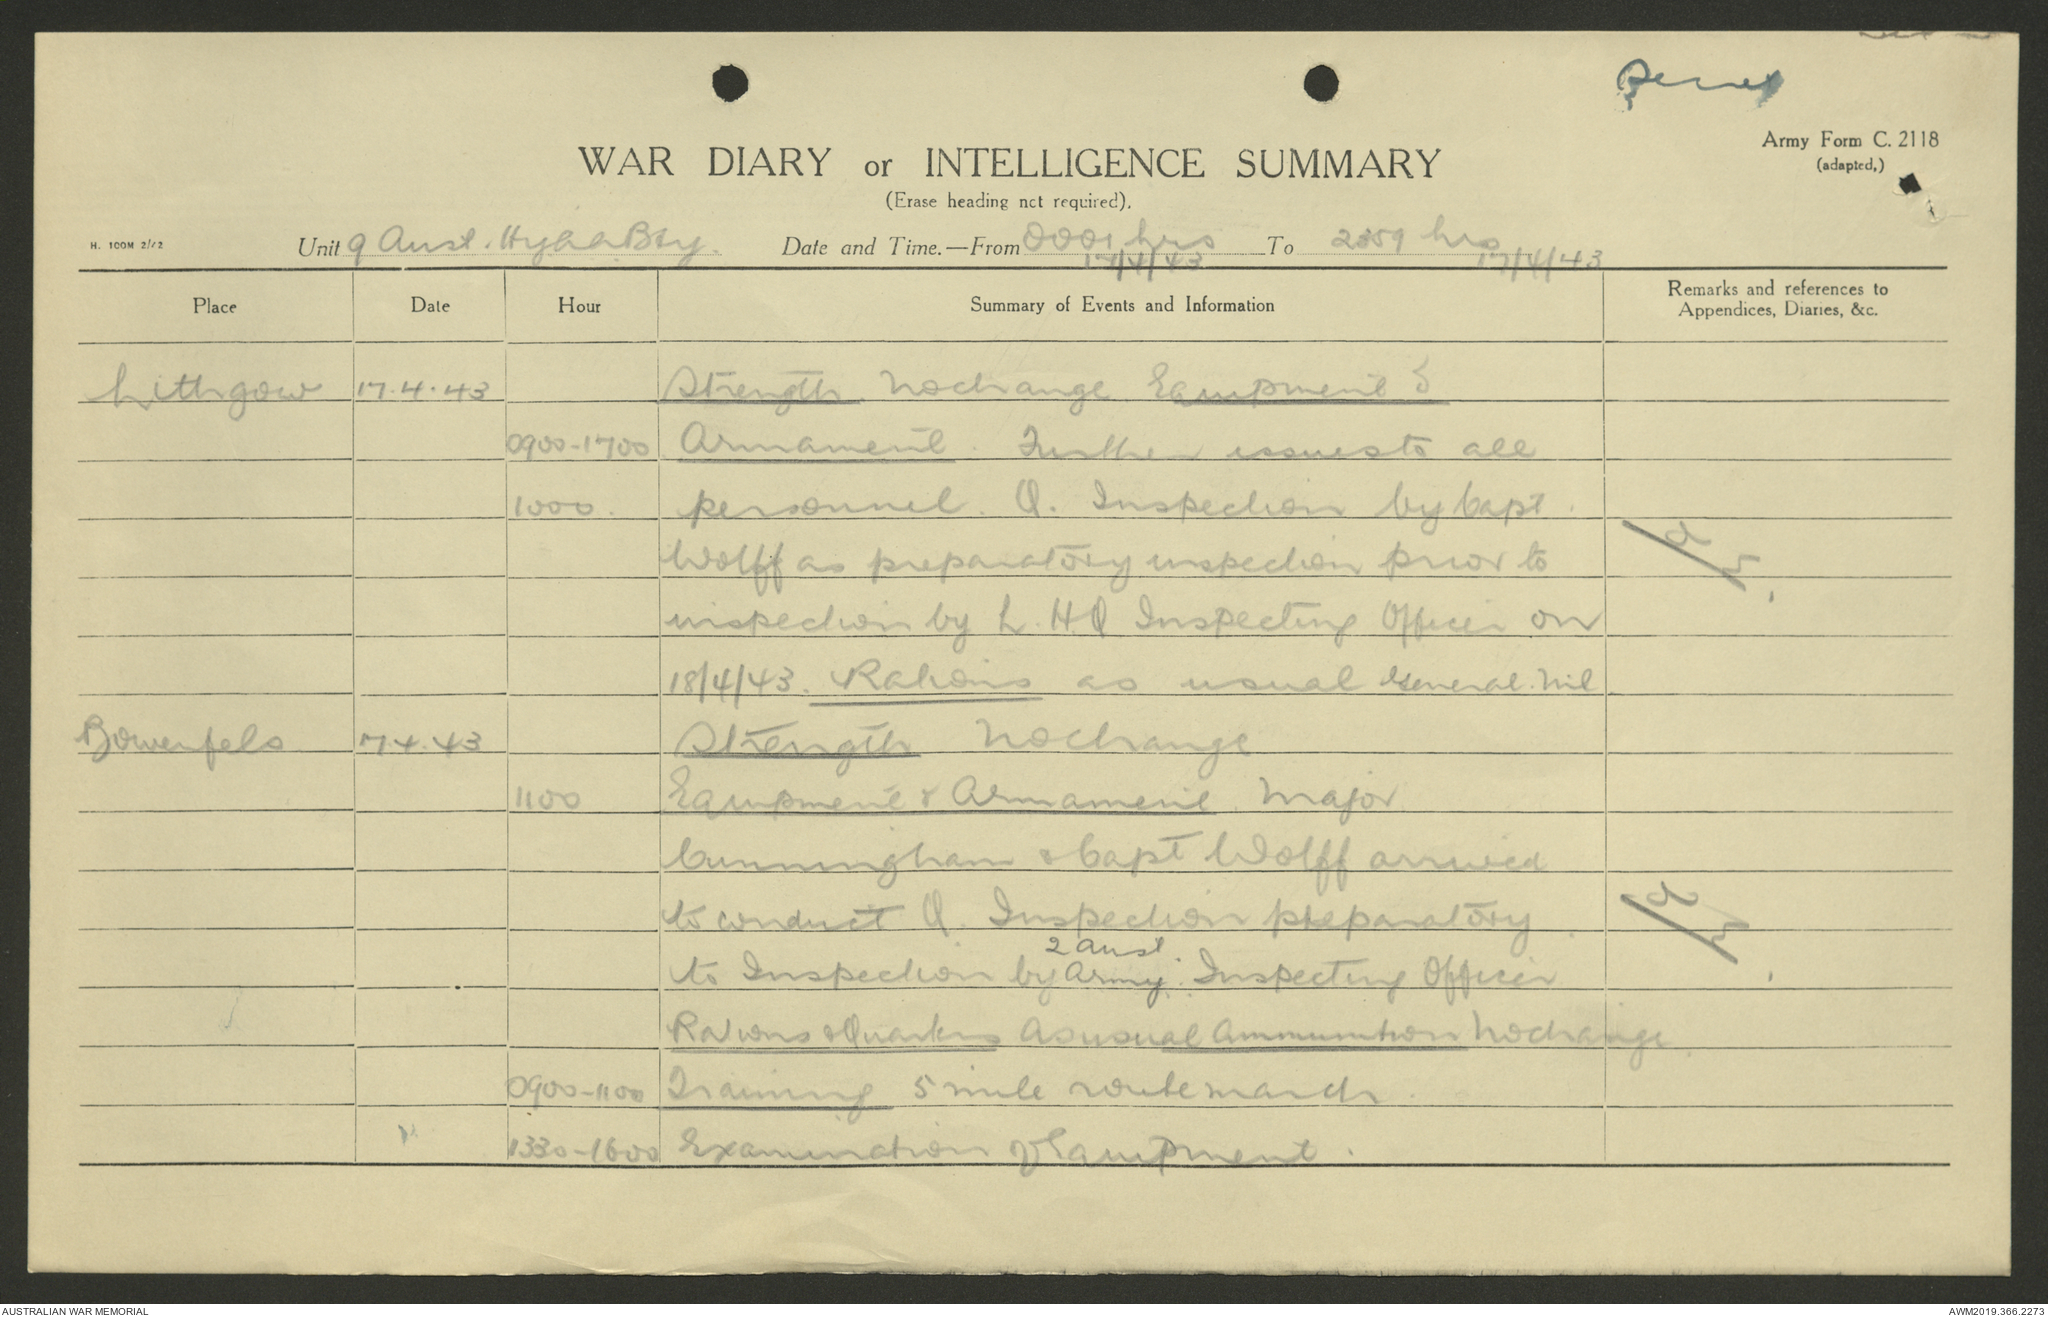 Secret
Army Form C. 2118
(adapted.)
WAR DIARY or INTELLIGENCE SUMMARY
(Erase heading not required).
H. 100M 2/42
Unit 9 Aust. Hy A A Bty. Date and Time.—From 0001 hrs 17/4/43 To 2359 hrs 17/4/43
Place Date Hour Summary of Events and Information Remarks and references to Appendices, Diaries, &c.
Lithgow 17.4.43 Strength No change Equipment &
0900-1700 Armament. Further issues to all
1000. personnel. Q. Inspection by Capt.
Wolff as preparatory inspection prior to
inspection by L.H.Q Inspecting Officer on
18/4/43. Rations as usual General. Nil
Bowenfels 17.4.43 Strength No change
1100 Equipment & Armament. Major
Cunningham & Capt Wolff arrived
to conduct Q. Inspection preparatory
2 Aust.
to Inspection by Army. Inspecting Officer
Rations & Quarters As usual Ammunition No change
0900-1100 Training 5 mile route march.
1330-1600 Examination of Equipment.
AUSTRALIAN WAR MEMORIAL
AWM2019.366.2273